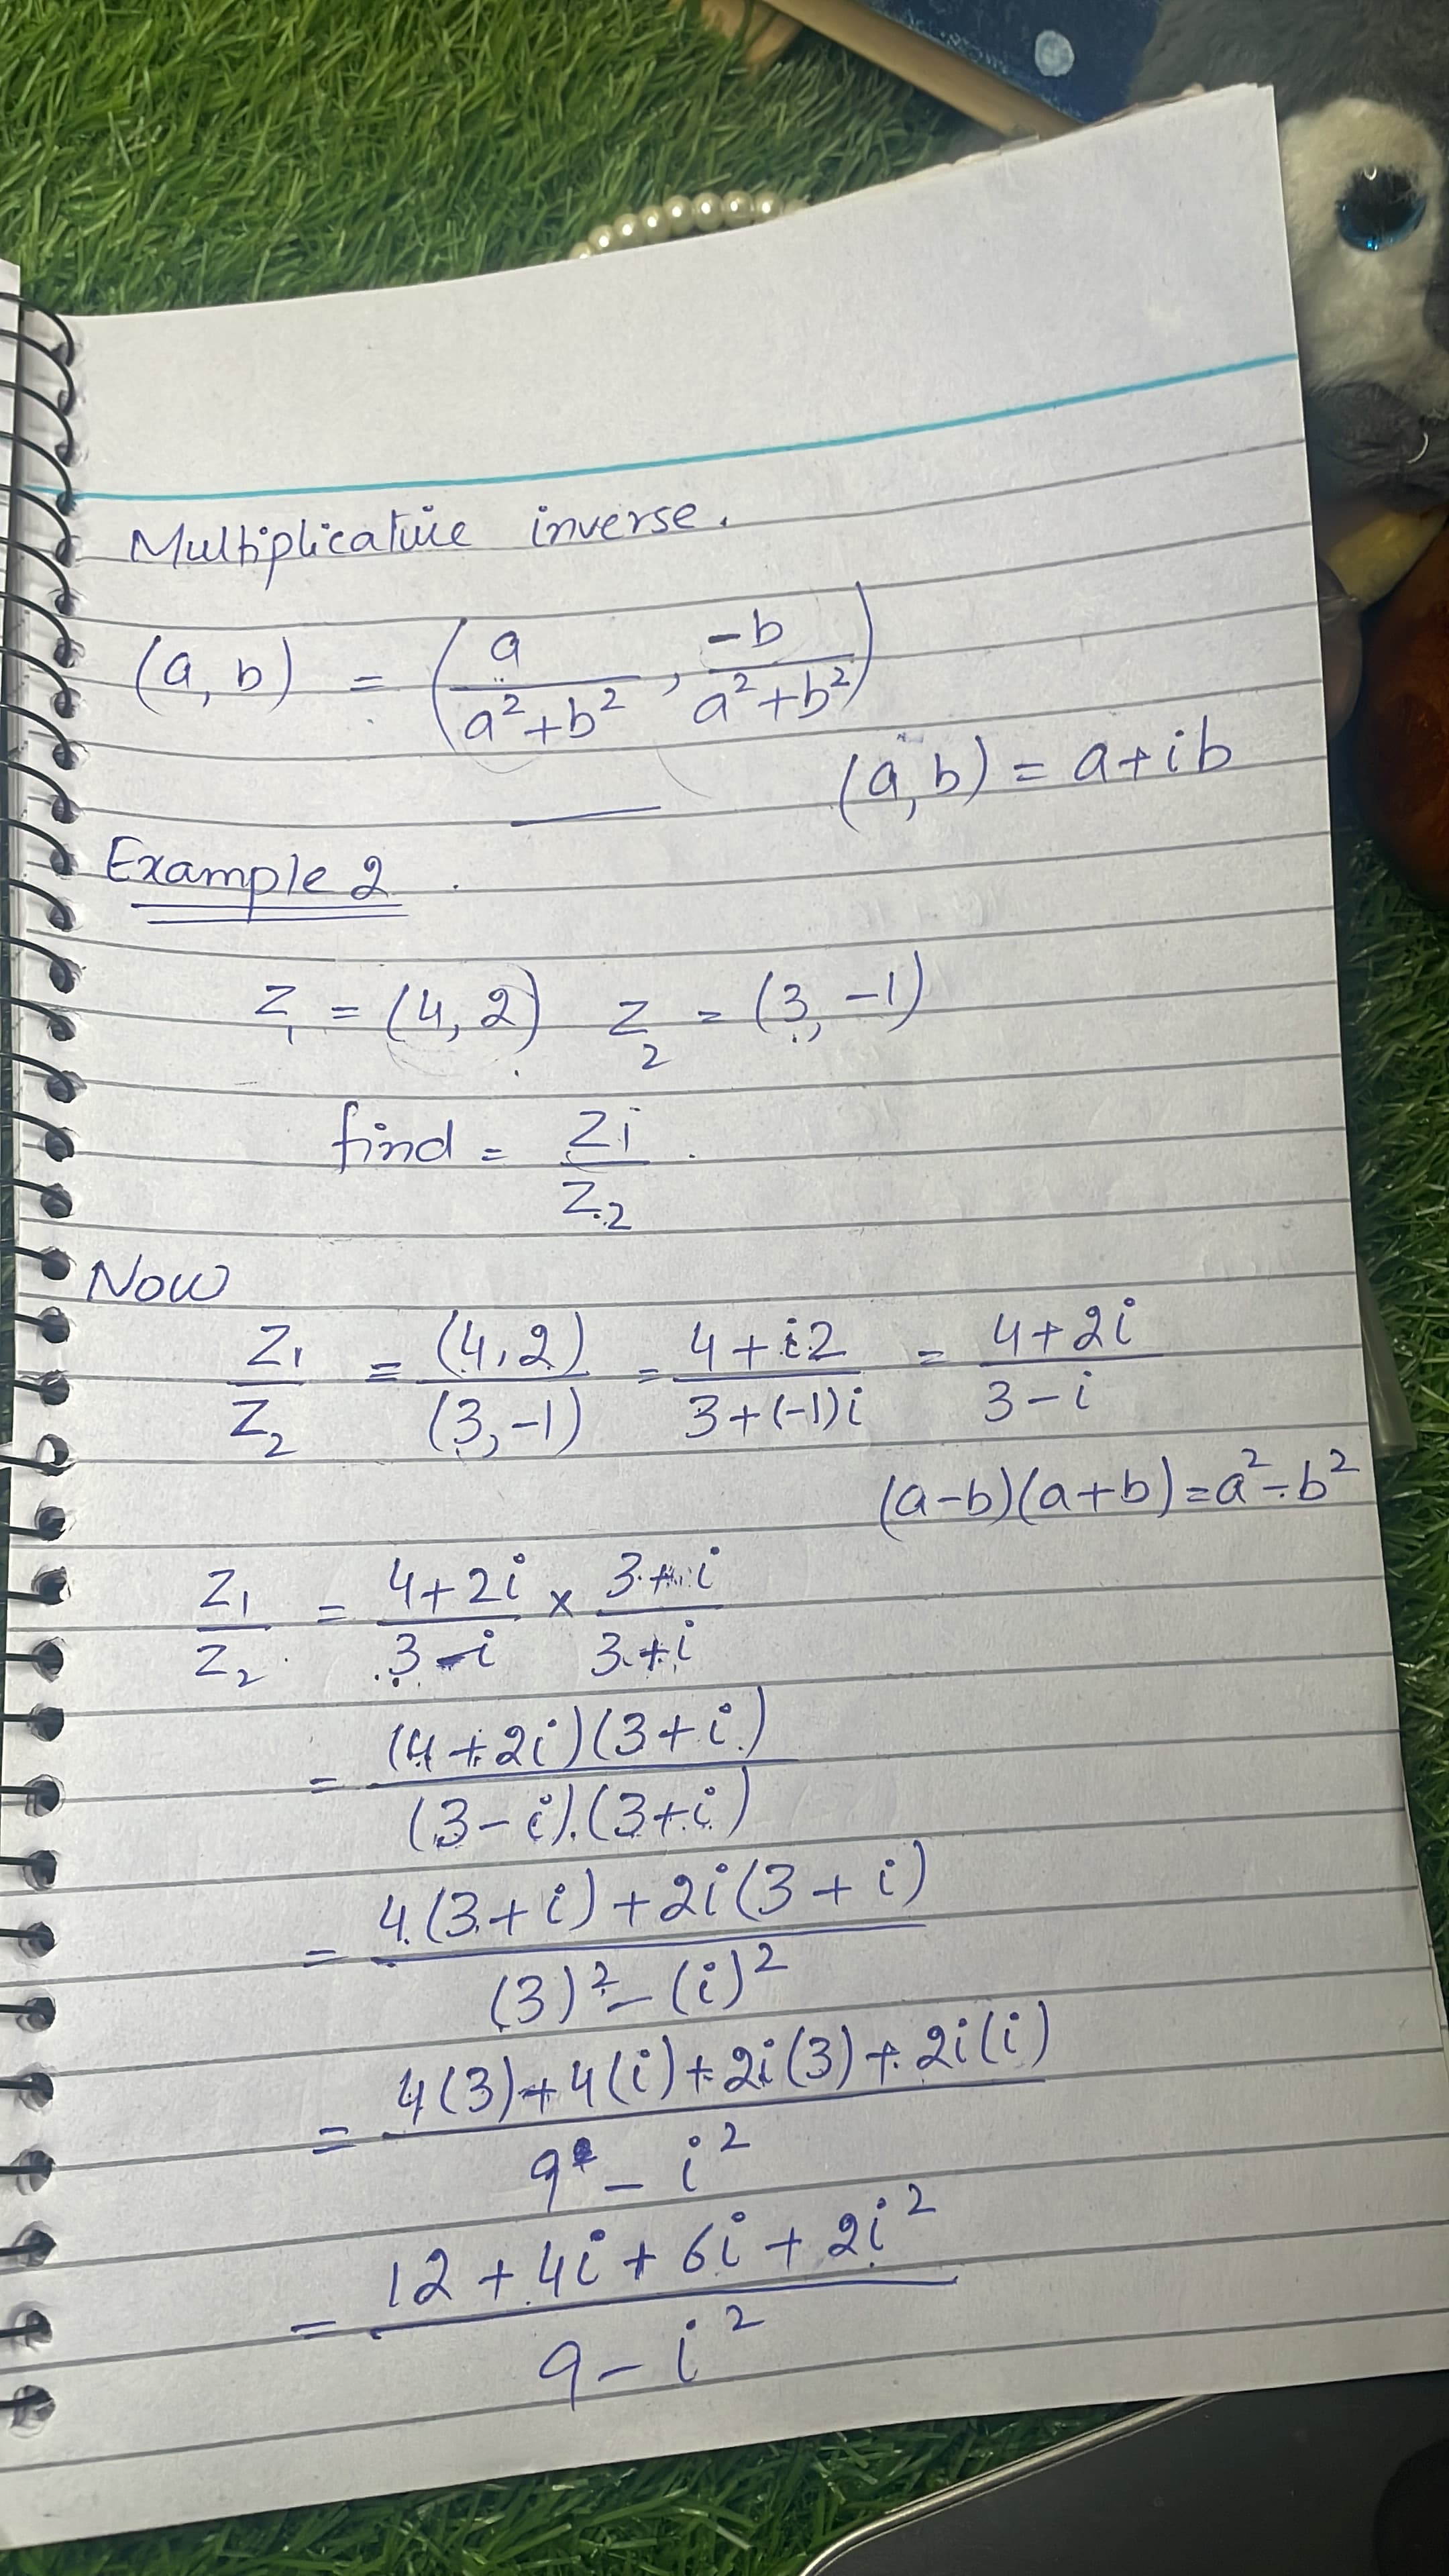 Multiplicative inverse.
(a, b) = (a/(a²+b²), -b/(a²+b²))
(a, b) = a+ib
Example 2
Z₁ = (4, 2) Z₂ = (3, -1)
find = Zi/Z₂
Now
Z₁/Z₂ = (4,2)/(3,-1) = (4+i2)/(3+(-1)i) = (4+2i)/(3-i)
(a-b)(a+b)=a²-b²
Z₁/Z₂ = (4+2i)/(3-i) × (3+i)/(3+i)
= (4+2i)(3+i)/(3-i).(3+i)
= (4(3+i)+2i(3+i))/((3)²-(i)²)
= (4(3)+4(i)+2i(3)+2i(i))/(9-i²)
= (12+4i+6i+2i²)/(9-i²)